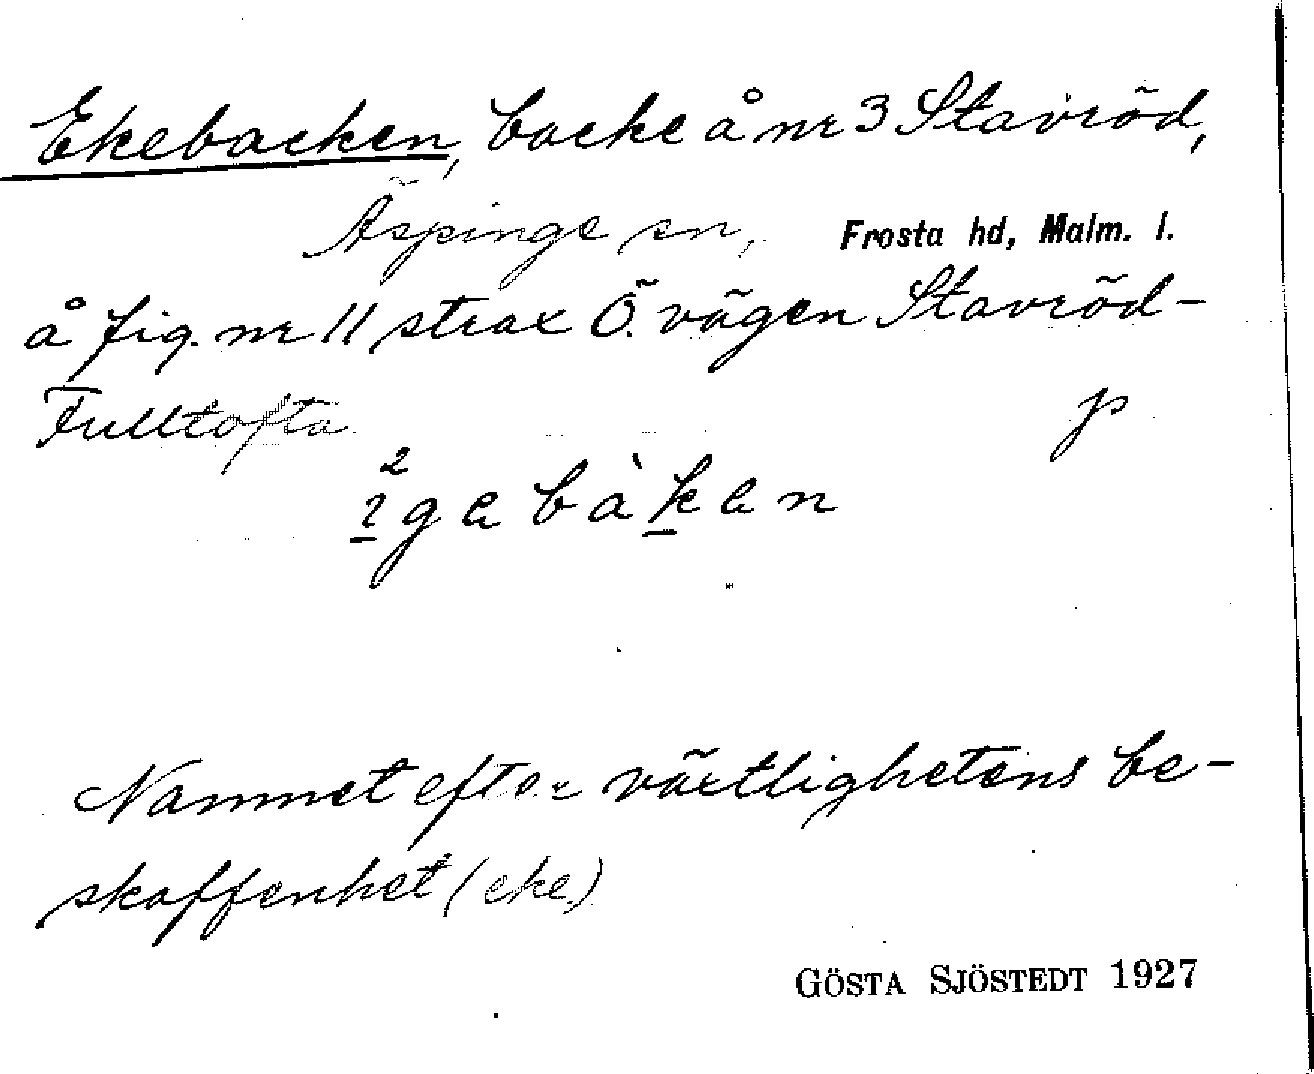 Ekebacken, backe å nr 3 Stavröd,
Äspinge sn, Frosta hd, Malm. l.
å fig. nr 11 strax Ö. vägen Stavröd-
Fulltofta p
Namnet efter växtlighetens be-
skaffenhet (eke)
GÖSTA SJÖSTEDT 1927